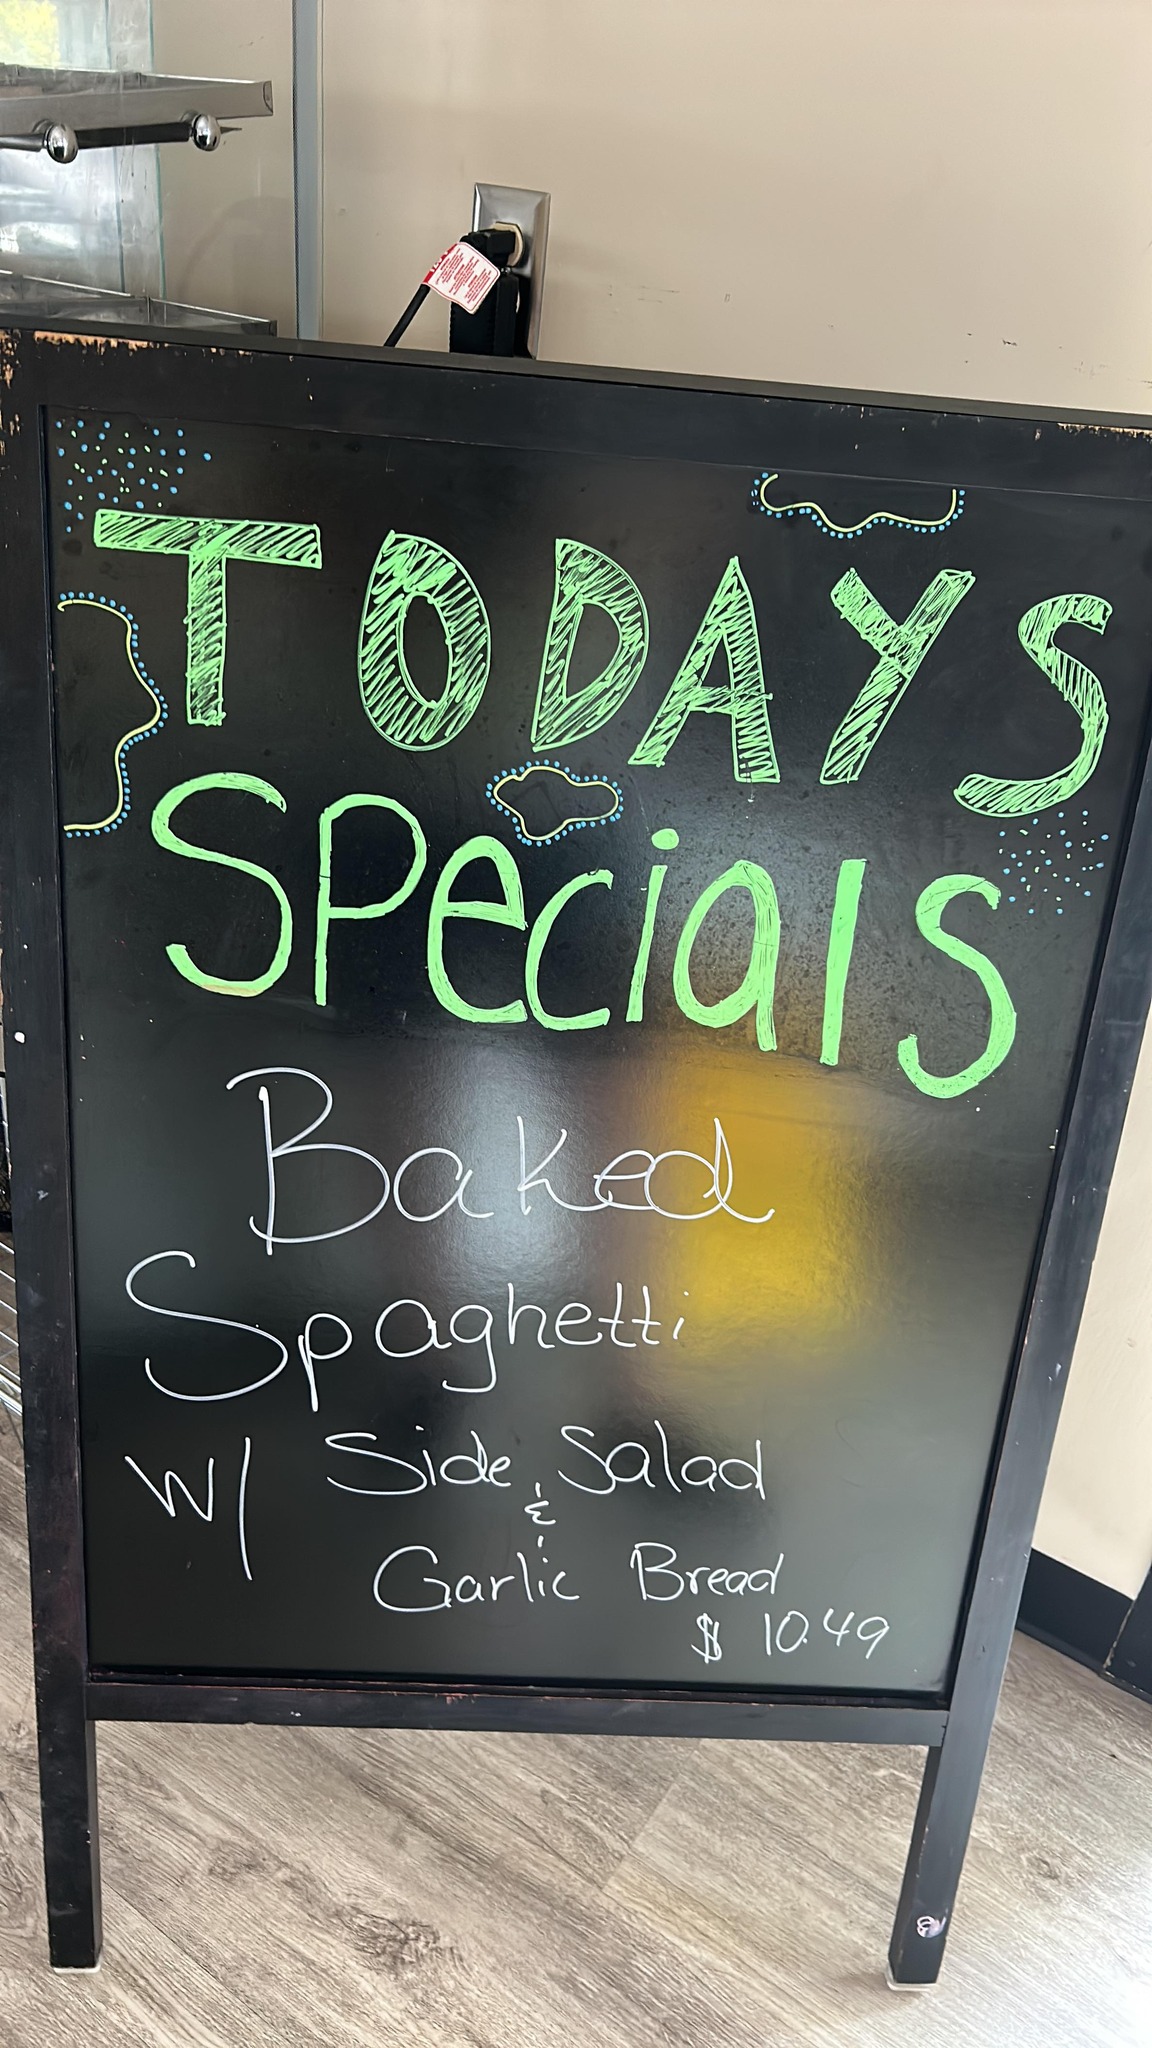 TODAYS
SPecialS
Baked
Spaghetti
w/ Side Salad
&
Garlic Bread
$ 10.49